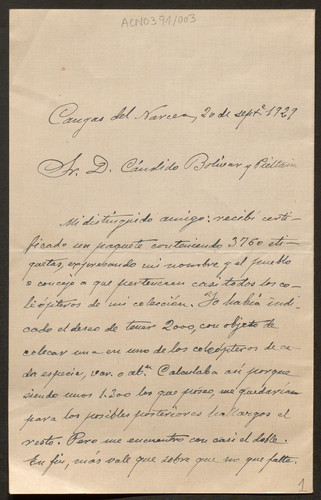 ACN0391/003
Cangas del Narcea, 20 de septe. 1929
Sr. D. Cándido Bolívar y Pieltain
Mi distinguido amigo: recibí certi-
ficado un paquete conteniendo 3760 eti-
quetas, expresando mi nombre, y el pueblo
o concejo a que pertenecen casi todos los co-
leópteros de mi colección. Yo había indi-
cado el deseo de tener 2000, con objeto de
colocar una en uno de los coleópteros de ca-
da especie, var. o abn. Calculaba así porque
siendo unos 1.300 los que poseo, me quedarían
para los posibles posteriores hallazgos el
resto. Pero me encuentro con casi el doble.
En fin, más vale que sobre que no que falte.
1